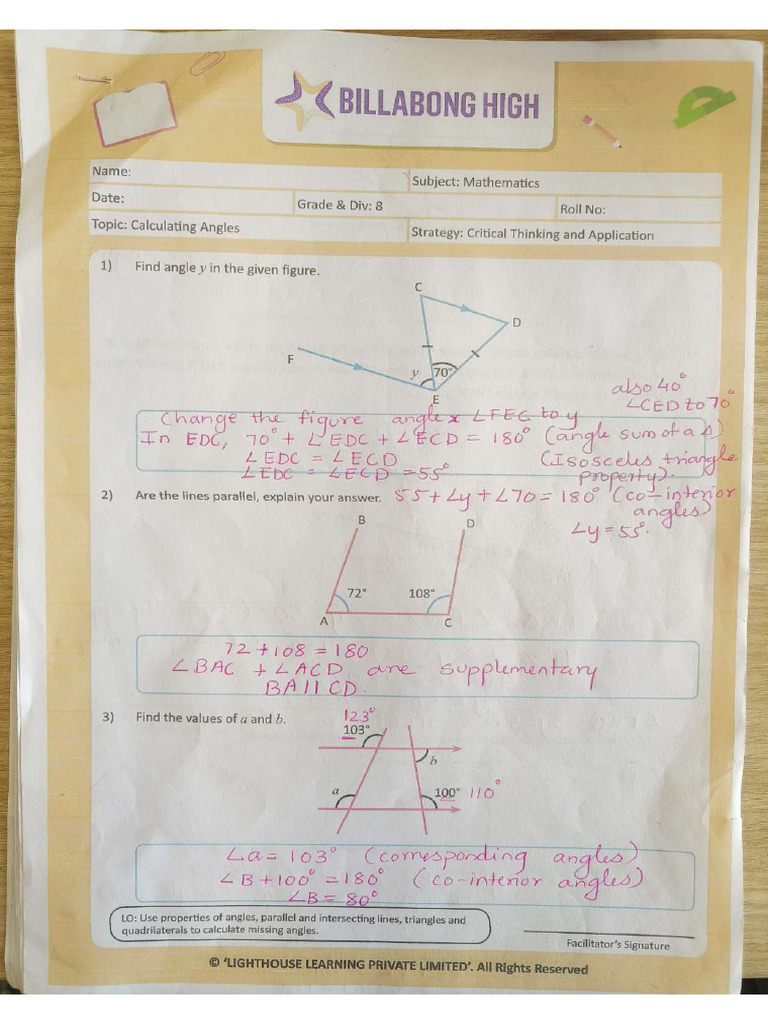 BILLABONG HIGH
Name:
Subject: Mathematics
Date:
Grade & Div: 8
Roll No:
Topic: Calculating Angles
Strategy: Critical Thinking and Application
1) Find angle y in the given figure.
C
D
F
y 70°
E
also 40°
∠CED to 70°
Change the figure angle x ∠FEC to y
In EDC, 70° + ∠EDC + ∠ECD = 180° (angle sum of a Δ)
∠EDC = ∠ECD (Isosceles triangle
∠EDC = ∠ECD = 55° property).
2) Are the lines parallel, explain your answer. 55 + ∠y + ∠70 = 180° (co-interior
angles)
∠y = 55°.
B D
72° 108°
A C
72 + 108 = 180
∠BAC + ∠ACD are supplementary
BA II CD.
3) Find the values of a and b. 123°
103°
b
a 100° 110°
∠a = 103° (corresponding angles)
∠B + 100° = 180° (co-interior angles)
∠B = 80°
LO: Use properties of angles, parallel and intersecting lines, triangles and
quadrilaterals to calculate missing angles.
Facilitator's Signature
© 'LIGHTHOUSE LEARNING PRIVATE LIMITED'. All Rights Reserved